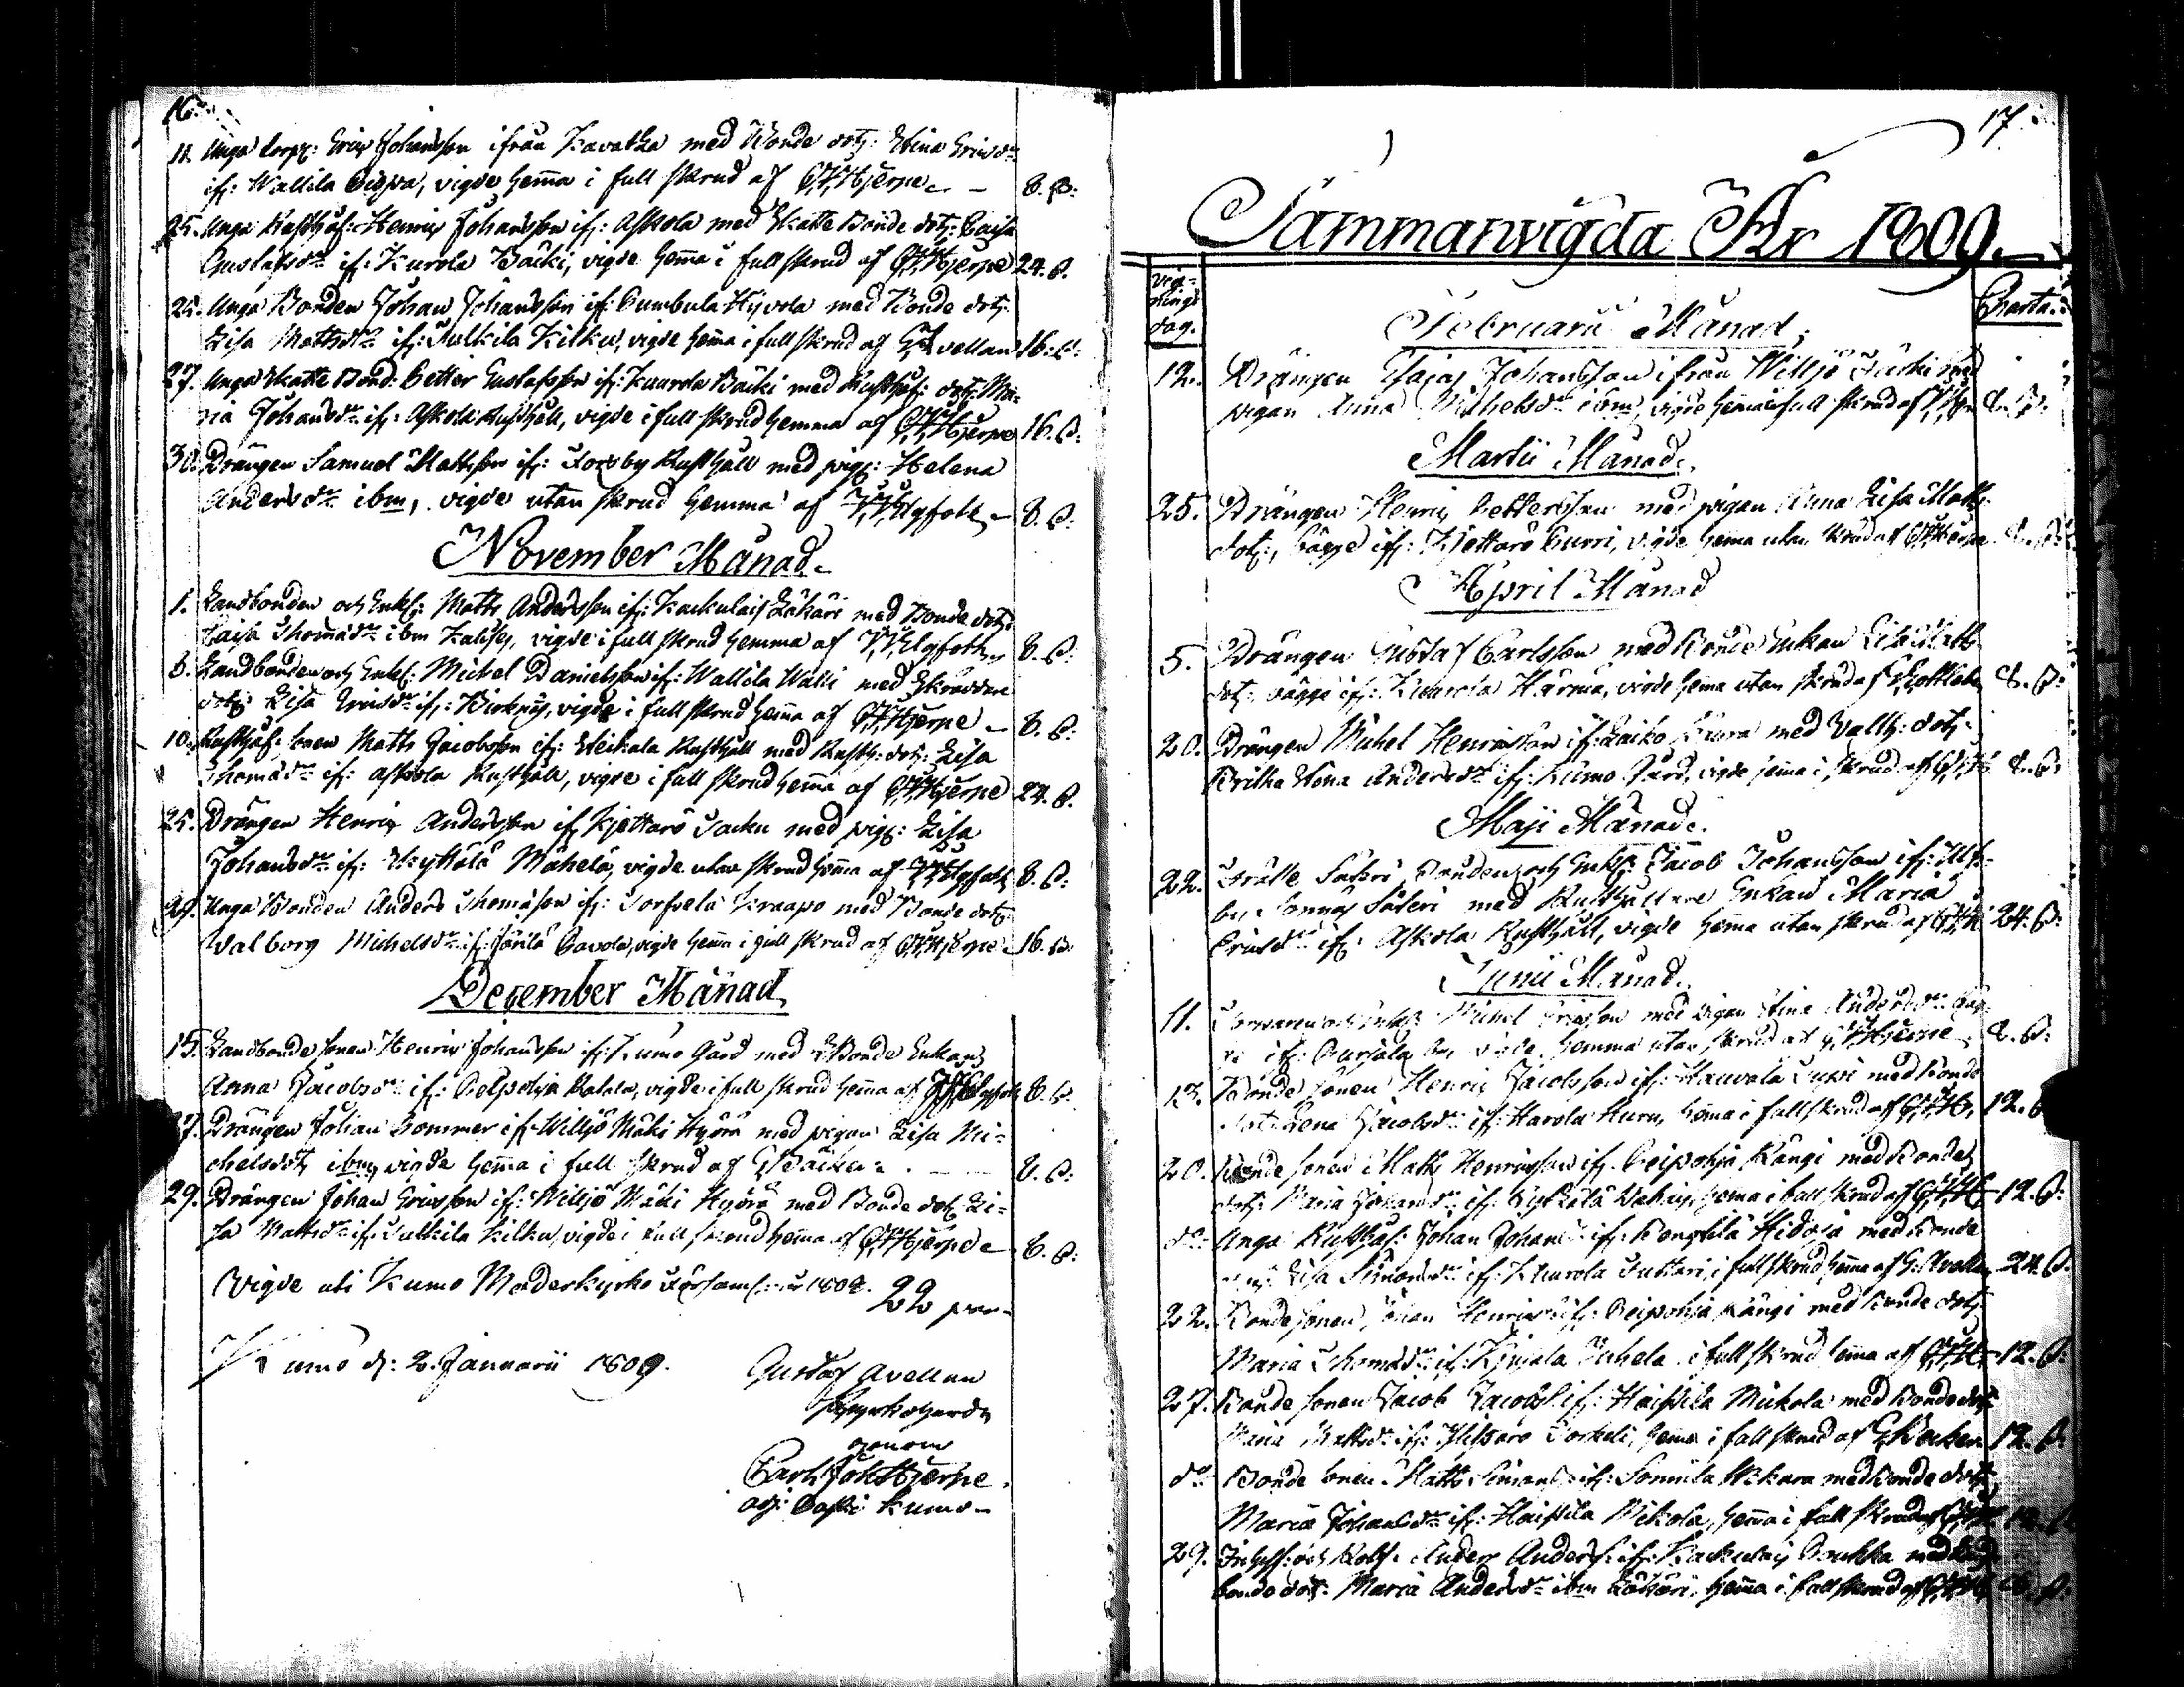 16.
11. Unga Torp: Eric Johansson ifrån Kavalka med Bonde dotr: Stina Ericsdr
if: Wallila, vigde hema i full skrud af C.J. Hjerpe 8. ß:
25. Unga Rusthål: Henric Johansson if: Askola med Skatte Bonde dotr: Caisa
Gustafsdr if: Kurola Bäcki, vigde hema i full skrud af C.J. Hjerpe 24. ß.
25. Unga Bonden Johan Johansson if: Cumbula Hyvola med Bonde dotr
Lisa Mattsdr if: Sulkila Kilku, vigde hema i full skrud af G. Avellan 16. ß:
27. Unga Skatte Bond: Petter Gustafsson if: Kuurola Bäcki med Rusthål: dotr: Ma-
ria Johansdr if: Askola Rusthåll, vigde i full skrud hemma af C.J. Hjerpe 16. ß:
30. Drängen Samuel Mattsson if: Forsby Rusthåll med pig: Helena
Andersdr ibm, vigde utan skrud hemma af Elgfoth 8. ß:
November Månad.
1. Landbonden och Enkl: Matts Andersson if: Kackulais Läkäri med Bonde dotr
Caisa Thomasdr ibm, vigde i full skrud hemma af Elgfoth 8. ß:
6. Landbonden och Enkl: Michel Danielsson if: Wallila Wälli med Skräddare
dotr: Lisa Ericsdr if:, vigde i full skrud hema af C.J. Hjerpe 8. ß:
10. Rusthål: sonen Matts Jacobsson if: Rusthåll med Rusth: dotr: Lisa
Thomasdr if: Askola Rusthåll, vigde i full skrud hema af C.J. Hjerpe 24. ß.
25. Drängen Henric Andersson if Kjettarö med pig: Lisa
Johansdr if: Kyttälä Mähelä, vigde utan skrud hema af Elgfoth 8. ß:
29. Unga Bonden Anders Thomasson if: Torfvela Kraapo med Bonde dotr:
Walborg Michelsdr if: Pavola, vigde hema i full skrud af C.J. Hjerpe 16. ß.
December Månad.
15. Landbonde sonen Henric Johansson if: Kumo Gård med Bonde Enkan
Anna Jacobsdr if:, vigde i full skrud hema af Elgfoth 8. ß.
27. Drängen Johan Sommer if: Willjö Mäki Hyörä med pigan Lisa Mi-
chelsdotr ibm, vigde hema i full skrud af G. Bäcker 8. ß:
29. Drängen Johan Ericsson if: Willjö Mäki Hyörä med Bonde dotr Li-
sa Mattsdr if: Sulkila Kilku, vigde i full skrud hema af C.J. Hjerpe 8. ß:
Vigde uti Kumo Moderkyrko Församl: år 1808. 22 par
Kumo d: 2. Januarii 1809. Gustaf Avellan
Kyrkoherde
genom
Carl Joh Hjerpe.
adj: Past: i Kumo
17.
Sammanvigda År 1809.
Vig-
nings
dag.
Charta.
Februarii Månad;
12. Drängen Esaias Johansson ifrån Willjö med
pigan Anna Michelsdr ibm, vigde hema i full skrud af 8. ß:
Martii Månad.
25. Drängen Henric Pettersson med pigan Anna Lisa Matts-
dotr, bägge if: Kjettarö Curri, vigde hema utan skrud af C.J. Hjerpe 8. ß:
April Månad
5. Drängen Gustaf Carlsson med Bonde Enkan Lisa Matts
dotr, bägge if: Kuurola Härmä, vigde hema utan skrud af 8. ß:
20. Drängen Michel Henricsson if: med Vallb: dotr:
Britha Stina Andersdr if: Kumo Gård, vigde hema i skrud af C.J.H. 8. ß:
Maji Månad.
22. Frälse Säteri Bonden och Enkl: Jacob Johansson if: Ulfs-
by Sonnäs Säteri med Rusthållare Enkan Maria
Ericsdr if: Askola Rusthåll, vigde hema utan skrud af C.J.H. 24. ß:
Junii Månad.
11. Torparen och Enkl: Michel Ericsson med Pigan Stina Andersdr bäg-
ge if:, vigde hemma utan skrud af C.J. Hjerpe 8. ß:
13. Bonde sonen Henric Jacobsson if: med Bonde
dotr: Lena Jacobsdr if: Harola, hema i full skrud af C.J.H. 12. ß
20. Bonde sonen Matts Henricsson if: Peipohja Kängi med Bonde
dotr: Maria Johansdr if:, hema i full skrud af C.J.H. 12. ß:
do Unga Rusthål: Johan Johans: if: Hidoja med Bonde
dotr: Lisa Simonsdr if: Kuurola, i full skrud hema af G. Avellan 24. ß.
22. Bonde sonen Johan Henrics: if: Peipohja Kängi med Bonde dotr
Maria Thomasdr if: i full skrud hema af C.J.H. 12. ß:
27. Bonde sonen Jacob Jacobs: if: Haistila Mickola med Bonde dotr:
Maria Mattsdr if:, hema i full skrud af G. Bäcker 12. ß.
do Bonde sonen Matts Simons: if: Sonnila med Bonde dotr
Maria Johansdr if: Haistila Mikola, hema i full skrud af 12. ß.
29. Anders Anders: if: Kackulais med Land-
bonde dotr: Maria Andersdr ibm Läkäri, hema i full skrud af C.J.H.